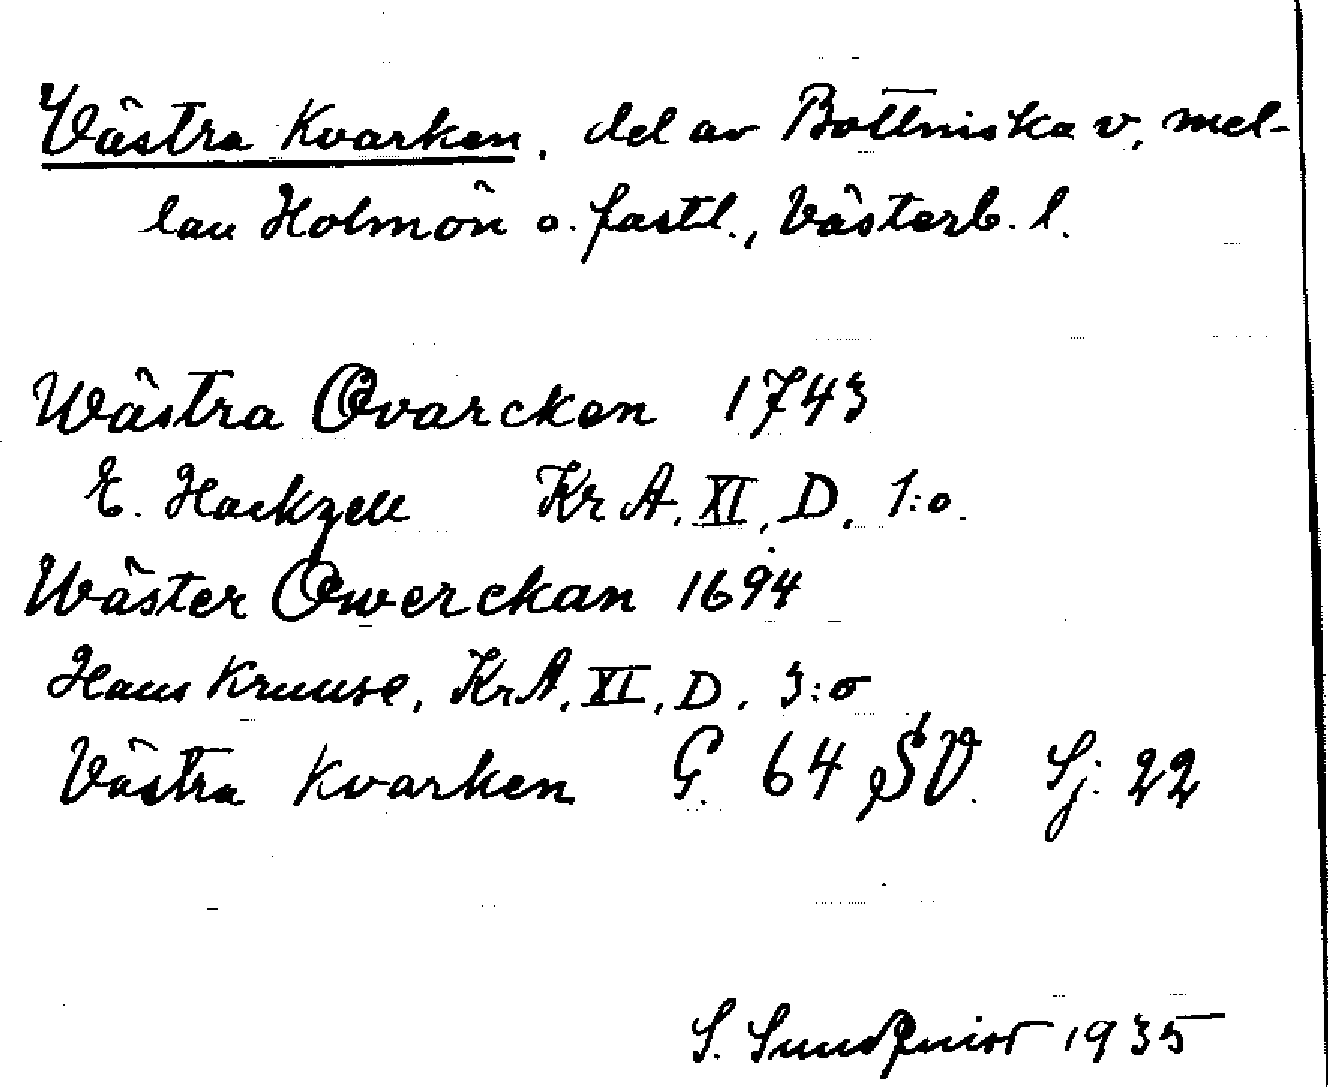 Västra Kvarken, del av Bottniska v. mel-
lan Holmön o. fastl., Västerb. l.
Wästra Qvarcken 1743
E. Hackzell KrA. XI, D. 1:o.
Wäster Qwerckan 1694
Hans Kruuse, KrA. XI, D. 3:o
Västra Kvarken G. 64 SV. Sj. 22
S. Sundquist 1935